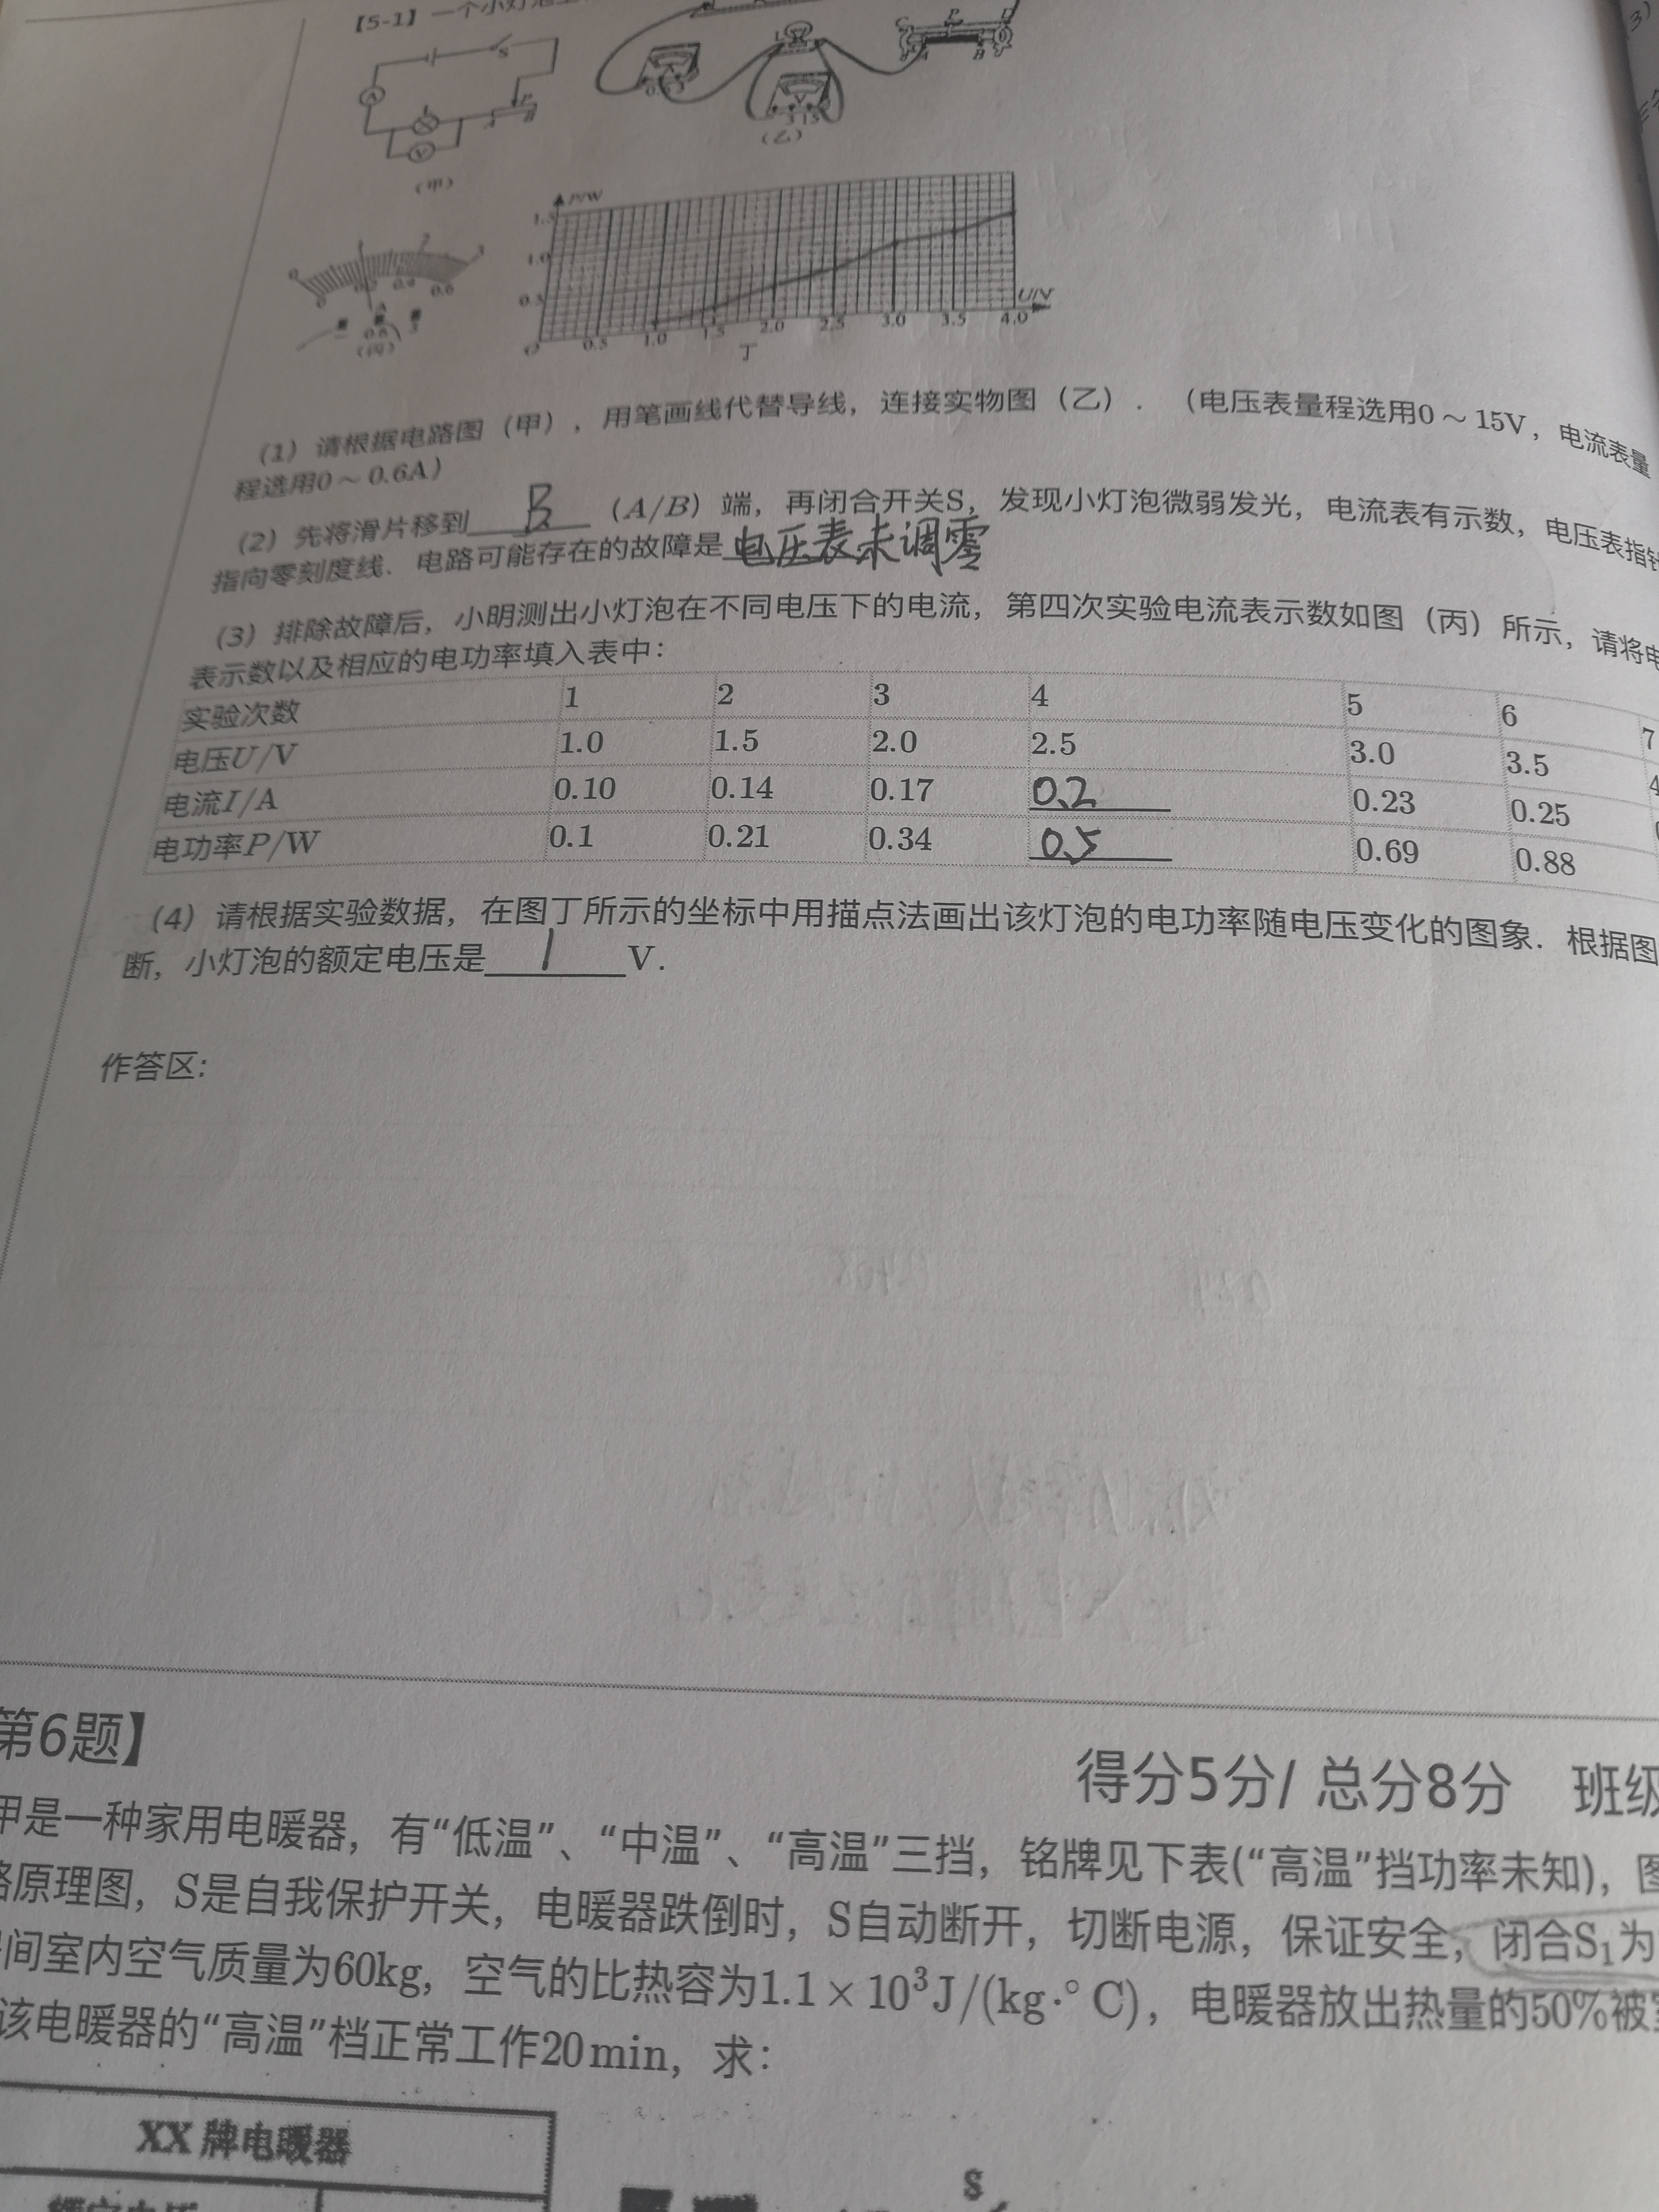 【5-1】一个小灯泡上
S
A
L
V
P
A
B
(甲)
(乙)
P/W
1.5
1.0
0.5
O
0.5
1.0
1.5
2.0
2.5
3.0
3.5
4.0
U/V
丁
(丙)
(1) 请根据电路图（甲），用笔画线代替导线，连接实物图（乙）. （电压表量程选用0～15V，电流表量
程选用0～0.6A）
(2) 先将滑片移到 B (A/B) 端，再闭合开关S，发现小灯泡微弱发光，电流表有示数，电压表指针
指向零刻度线. 电路可能存在的故障是电压表未调零
(3) 排除故障后，小明测出小灯泡在不同电压下的电流，第四次实验电流表示数如图（丙）所示，请将电
表示数以及相应的电功率填入表中:
实验次数 1 2 3 4 5 6 7
电压U/V 1.0 1.5 2.0 2.5 3.0 3.5
电流I/A 0.10 0.14 0.17 0.2 0.23 0.25
电功率P/W 0.1 0.21 0.34 0.5 0.69 0.88
(4) 请根据实验数据，在图丁所示的坐标中用描点法画出该灯泡的电功率随电压变化的图象. 根据图
断，小灯泡的额定电压是 1 V.
作答区:
第6题】
得分5分/ 总分8分 班级
甲是一种家用电暖器，有“低温”、“中温”、“高温”三挡，铭牌见下表(“高温”挡功率未知)，图
路原理图，S是自我保护开关，电暖器跌倒时，S自动断开，切断电源，保证安全，闭合S₁为
间室内空气质量为60kg，空气的比热容为1.1 × 10³J/(kg·° C)，电暖器放出热量的50%被室
该电暖器的“高温”档正常工作20min，求:
XX 牌电暖器
额定电压
S